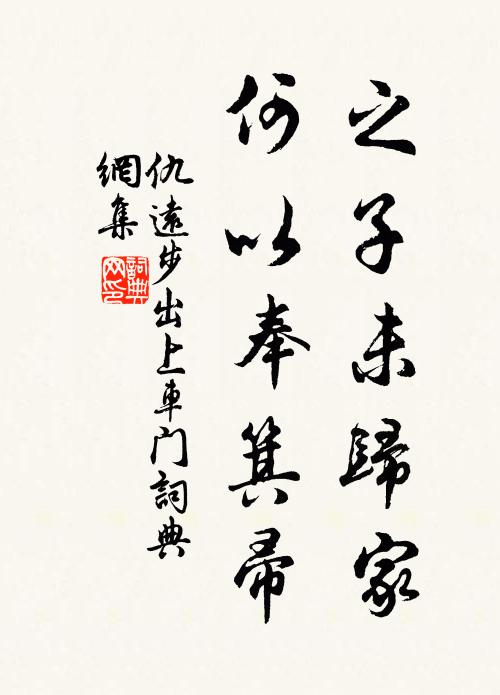 之子未歸家
何以奉箕帚
仇遠步出上車门詞典
網集
詞典
网印